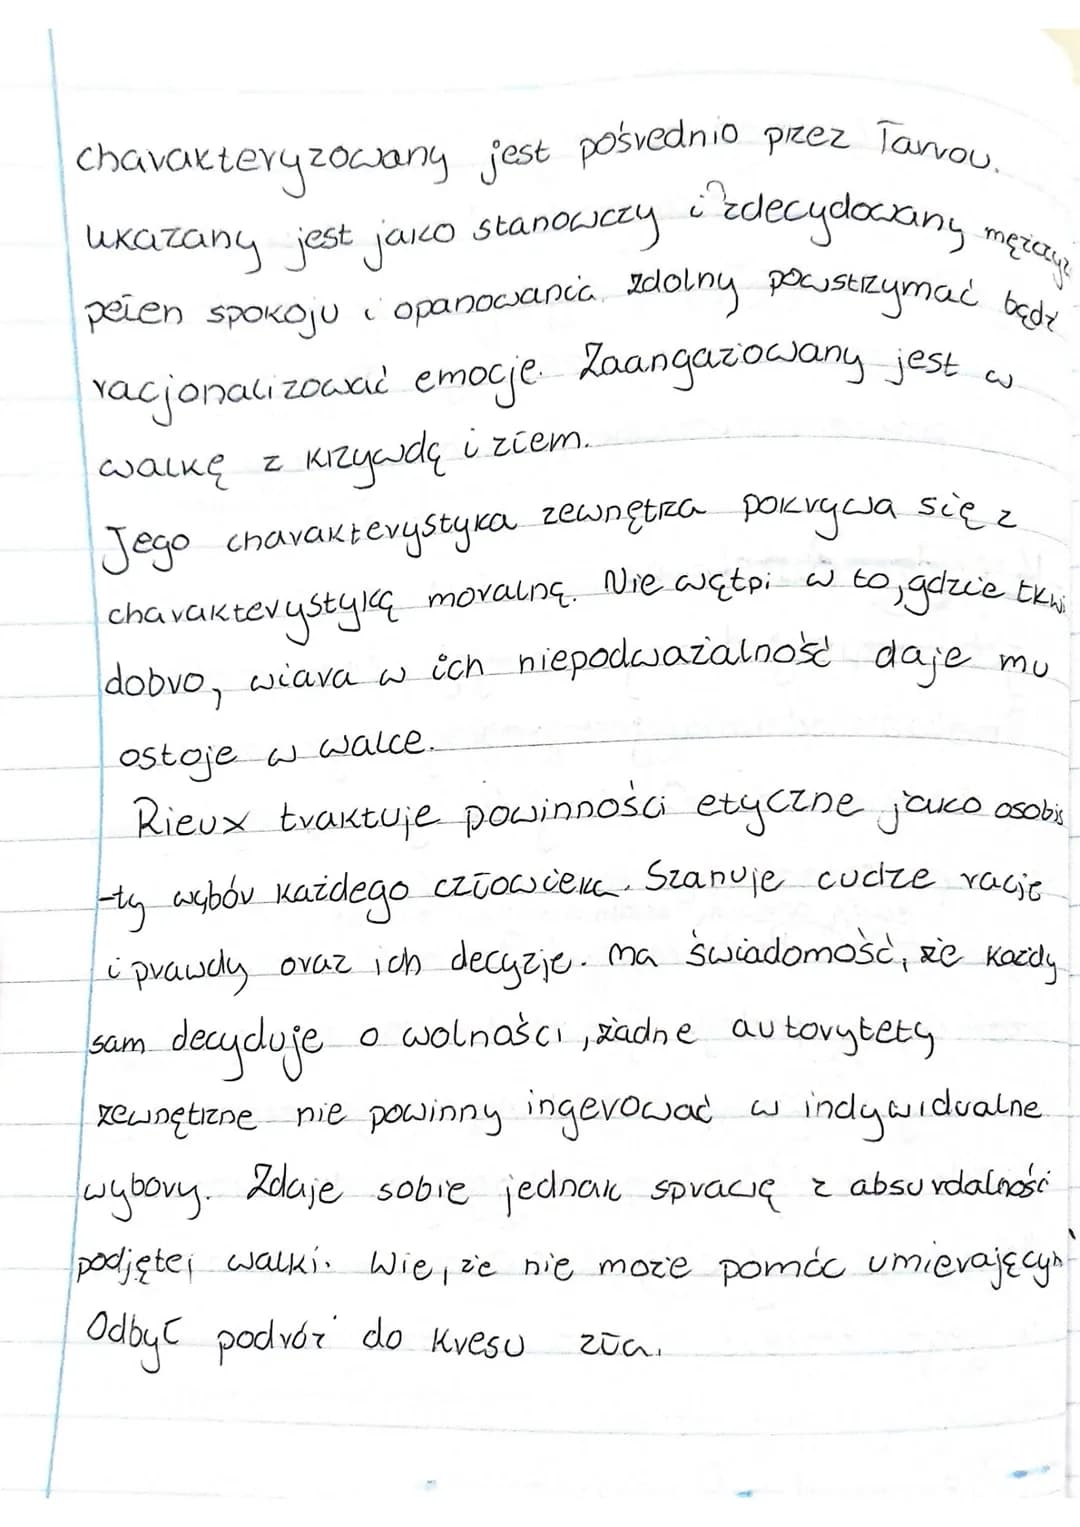 charakteryzowany jest pośrednio przez Tarrou.
ukazany jest jako stanowczy i zdecydowany mężczyz
pełen spokoju i opanowania, zdolny powstrzymać bądź
racjonalizować emocje. Zaangażowany jest w
walkę z krzywdą i złem.
Jego charakterystyka zewnętrza pokrywa się z
charakterystyką moralną. Nie wątpi w to, gdzie tkwi
dobro, wiara w ich niepodważalność daje mu
ostoje w walce.
Rieux traktuje powinności etyczne jako osobis
-ty wybór każdego człowieka. Szanuje cudze racje
i prawdy oraz ich decyzje. Ma świadomość, że każdy
sam decyduje o wolności, żadne autorytety
zewnętrzne nie powinny ingerować w indywidualne
wybory. Zdaje sobie jednak sprawę z absurdalności
podjętej walki. Wie, że nie może pomóc umierającym
Odbyć podróż do kresu zła.